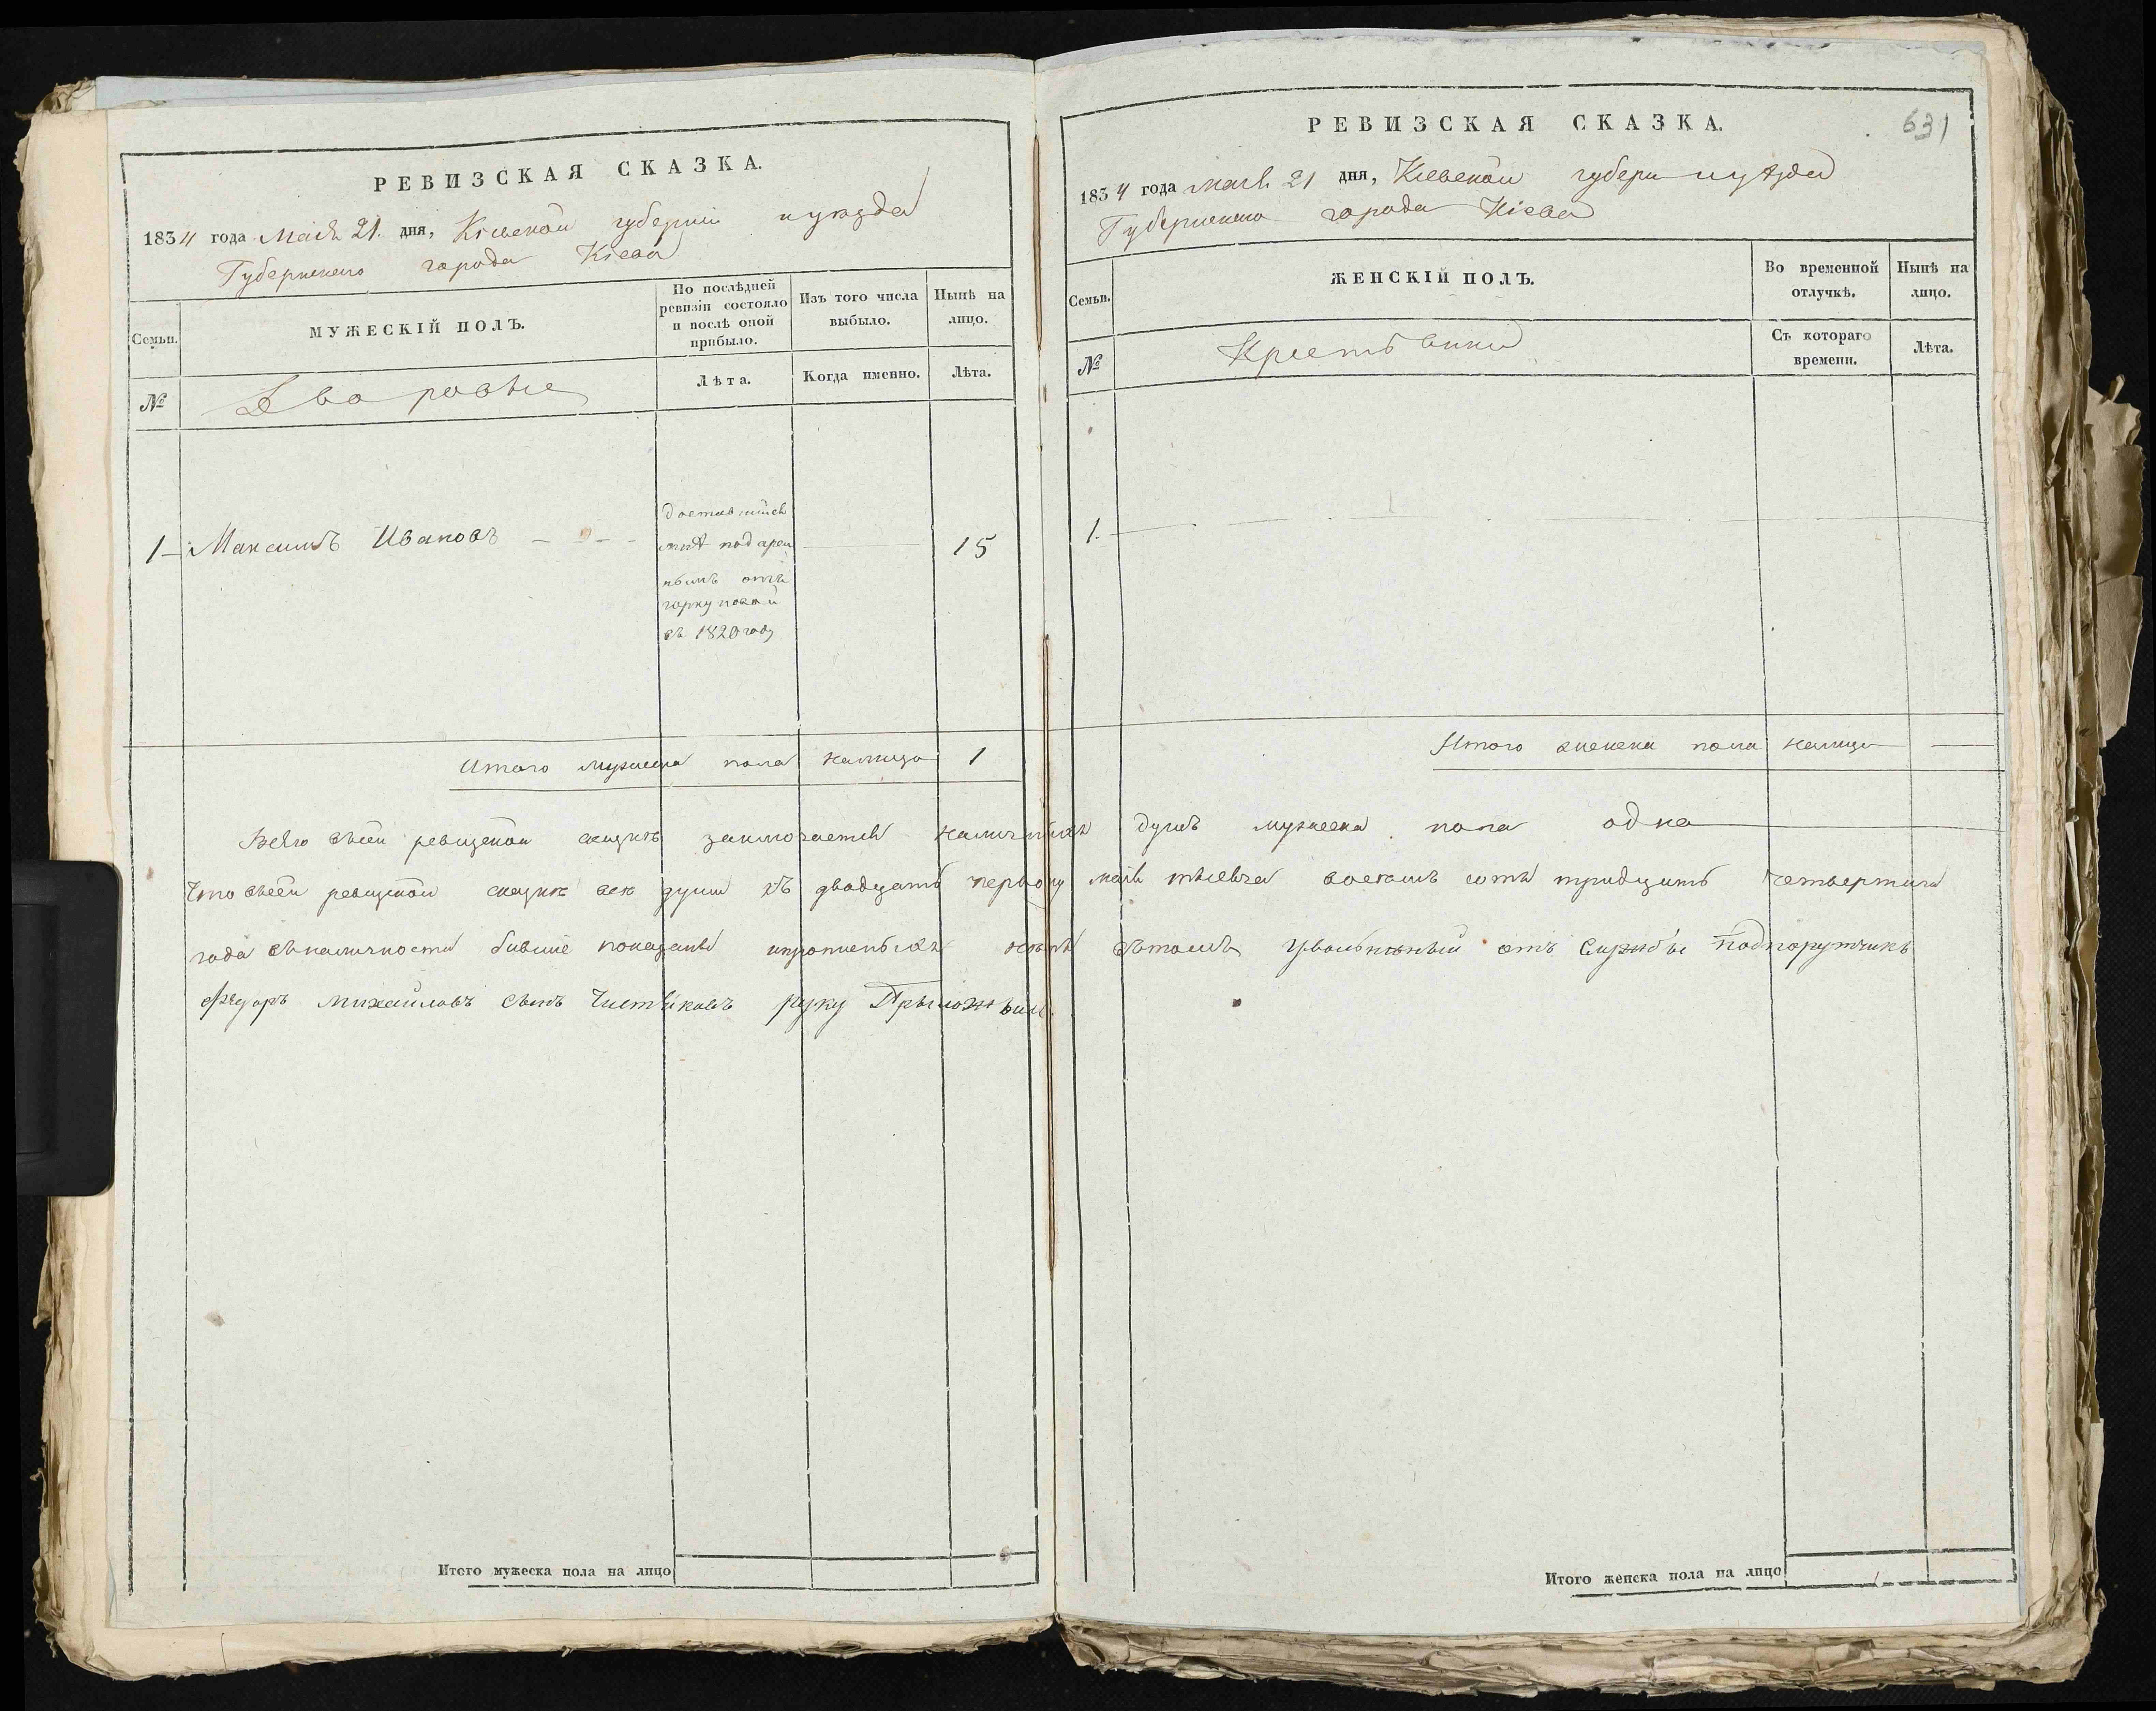 РЕВИЗСКАЯ СКАЗКА.
1834 года Маія 21. дня, Кіевской губерніи и уезда
Губернскаго города Кіева
Семьи.
МУЖЕСКІЙ ПОЛЪ.
По послѣдней
ревизіи состояло
и послѣ оной
прибыло.
Изъ того числа
выбыло.
Нынѣ на
лицо.
№
Дворовые
Лѣта.
Когда именно.
Лѣта.
1
Максимъ Ивановъ
доставшися
мнѣ подарен
нымъ отъ
въ 1820 году
15
Итого мужеска пола налицо 1
Итого мужеска пола на лицо
РЕВИЗСКАЯ СКАЗКА.
631
1834 года Маія 21 дня, Кіевской губерн и уѣзда
Губернскаго города Кіева
Семьи.
ЖЕНСКІЙ ПОЛЪ.
Во временной
отлучкѣ.
Нынѣ на
лицо.
№
Крестьянки
Съ котораго
времени.
Лѣта.
1.
Итого женска пола налицо
Всего въсей ревизской скаске заключается наличныхъ душъ мужеска пола одна
Что въсей ревизской скаске все души къ двадцать первому маія месяца восемь сотъ тридцать четвертаго
года въналичности бывшие показаны ипропеныхъ нетъ вътомъ Уволненный отъ Службы Подпорутчикъ
Федоръ Михайловъ сынъ Чистяковъ руку Прыложылъ
Итого женска пола на лицо